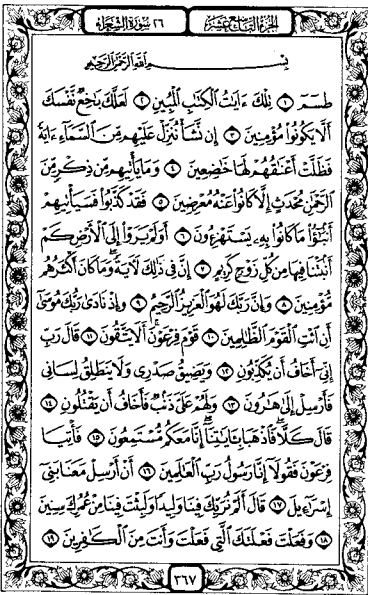 الجزء التاسع عشر
٢٦ سورة الشعراء
بِسْمِ ٱللَّهِ ٱلرَّحْمَٰنِ ٱلرَّحِيمِ
طسٓمٓ ١ تِلْكَ ءَايَٰتُ ٱلْكِتَٰبِ ٱلْمُبِينِ ٢ لَعَلَّكَ بَٰخِعٌ نَّفْسَكَ
أَلَّا يَكُونُوا۟ مُؤْمِنِينَ ٣ إِن نَّشَأْ نُنَزِّلْ عَلَيْهِم مِّنَ ٱلسَّمَآءِ ءَايَةً
فَظَلَّتْ أَعْنَٰقُهُمْ لَهَا خَٰضِعِينَ ٤ وَمَا يَأْتِيهِم مِّن ذِكْرٍ مِّنَ
ٱلرَّحْمَٰنِ مُحْدَثٍ إِلَّا كَانُوا۟ عَنْهُ مُعْرِضِينَ ٥ فَقَدْ كَذَّبُوا۟ فَسَيَأْتِيهِمْ
أَنۢبَٰٓؤُا۟ مَا كَانُوا۟ بِهِۦ يَسْتَهْزِءُونَ ٦ أَوَلَمْ يَرَوْا۟ إِلَى ٱلْأَرْضِ كَمْ
أَنۢبَتْنَا فِيهَا مِن كُلِّ زَوْجٍ كَرِيمٍ ٧ إِنَّ فِى ذَٰلِكَ لَءَايَةً وَمَا كَانَ أَكْثَرُهُم
مُّؤْمِنِينَ ٨ وَإِنَّ رَبَّكَ لَهُوَ ٱلْعَزِيزُ ٱلرَّحِيمُ ٩ وَإِذْ نَادَىٰ رَبُّكَ مُوسَىٰٓ
أَنِ ٱئْتِ ٱلْقَوْمَ ٱلظَّٰلِمِينَ ١٠ قَوْمَ فِرْعَوْنَ أَلَا يَتَّقُونَ ١١ قَالَ رَبِّ
إِنِّىٓ أَخَافُ أَن يُكَذِّبُونِ ١٢ وَيَضِيقُ صَدْرِى وَلَا يَنطَلِقُ لِسَانِى
فَأَرْسِلْ إِلَىٰ هَٰرُونَ ١٣ وَلَهُمْ عَلَىَّ ذَنۢبٌ فَأَخَافُ أَن يَقْتُلُونِ ١٤
قَالَ كَلَّا فَٱذْهَبَا بِـَٔايَٰتِنَآ إِنَّا مَعَكُم مُّسْتَمِعُونَ ١٥ فَأْتِيَا
فِرْعَوْنَ فَقُولَآ إِنَّا رَسُولُ رَبِّ ٱلْعَٰلَمِينَ ١٦ أَنْ أَرْسِلْ مَعَنَا بَنِىٓ
إِسْرَٰٓءِيلَ ١٧ قَالَ أَلَمْ نُرَبِّكَ فِينَا وَلِيدًا وَلَبِثْتَ فِينَا مِنْ عُمُرِكَ سِنِينَ
١٨ وَفَعَلْتَ فَعْلَتَكَ ٱلَّتِى فَعَلْتَ وَأَنتَ مِنَ ٱلْكَٰفِرِينَ ١٩
٣٦٧